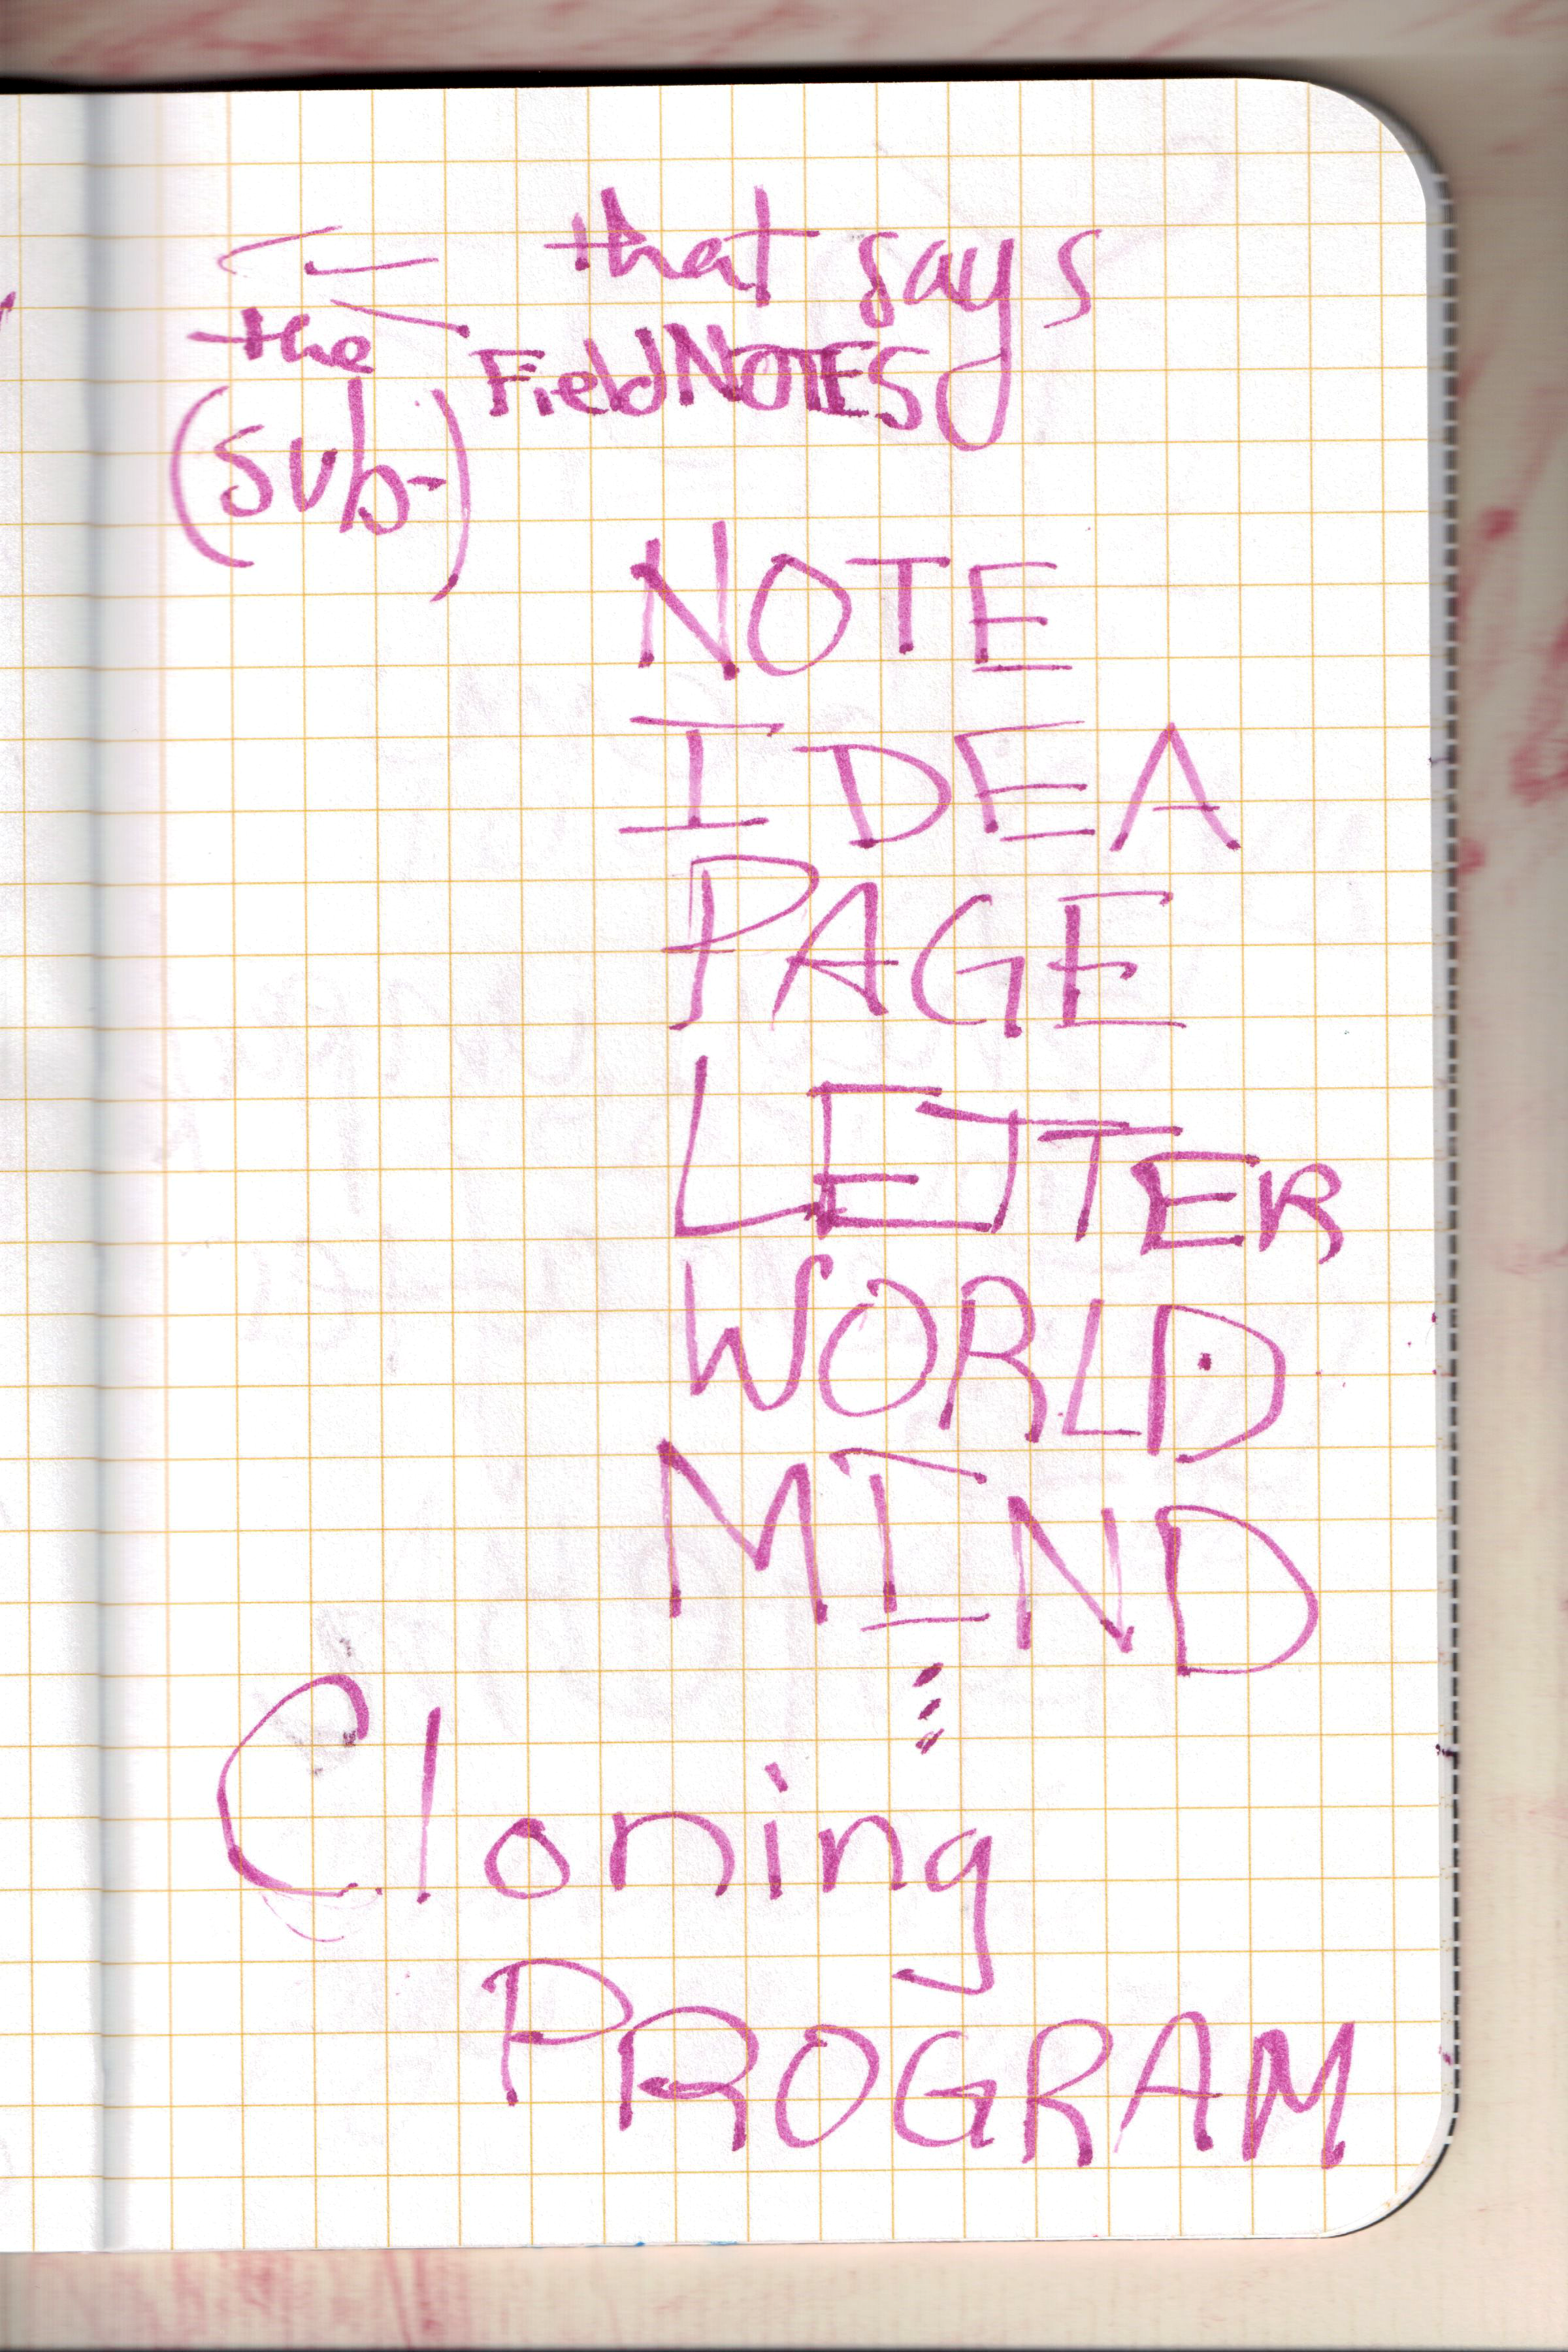 that says
the FieldNOTES
(sub-)
NOTE
IDEA
PAGE
LETTER
WORLD
MIND
⋮
Cloning
PROGRAM